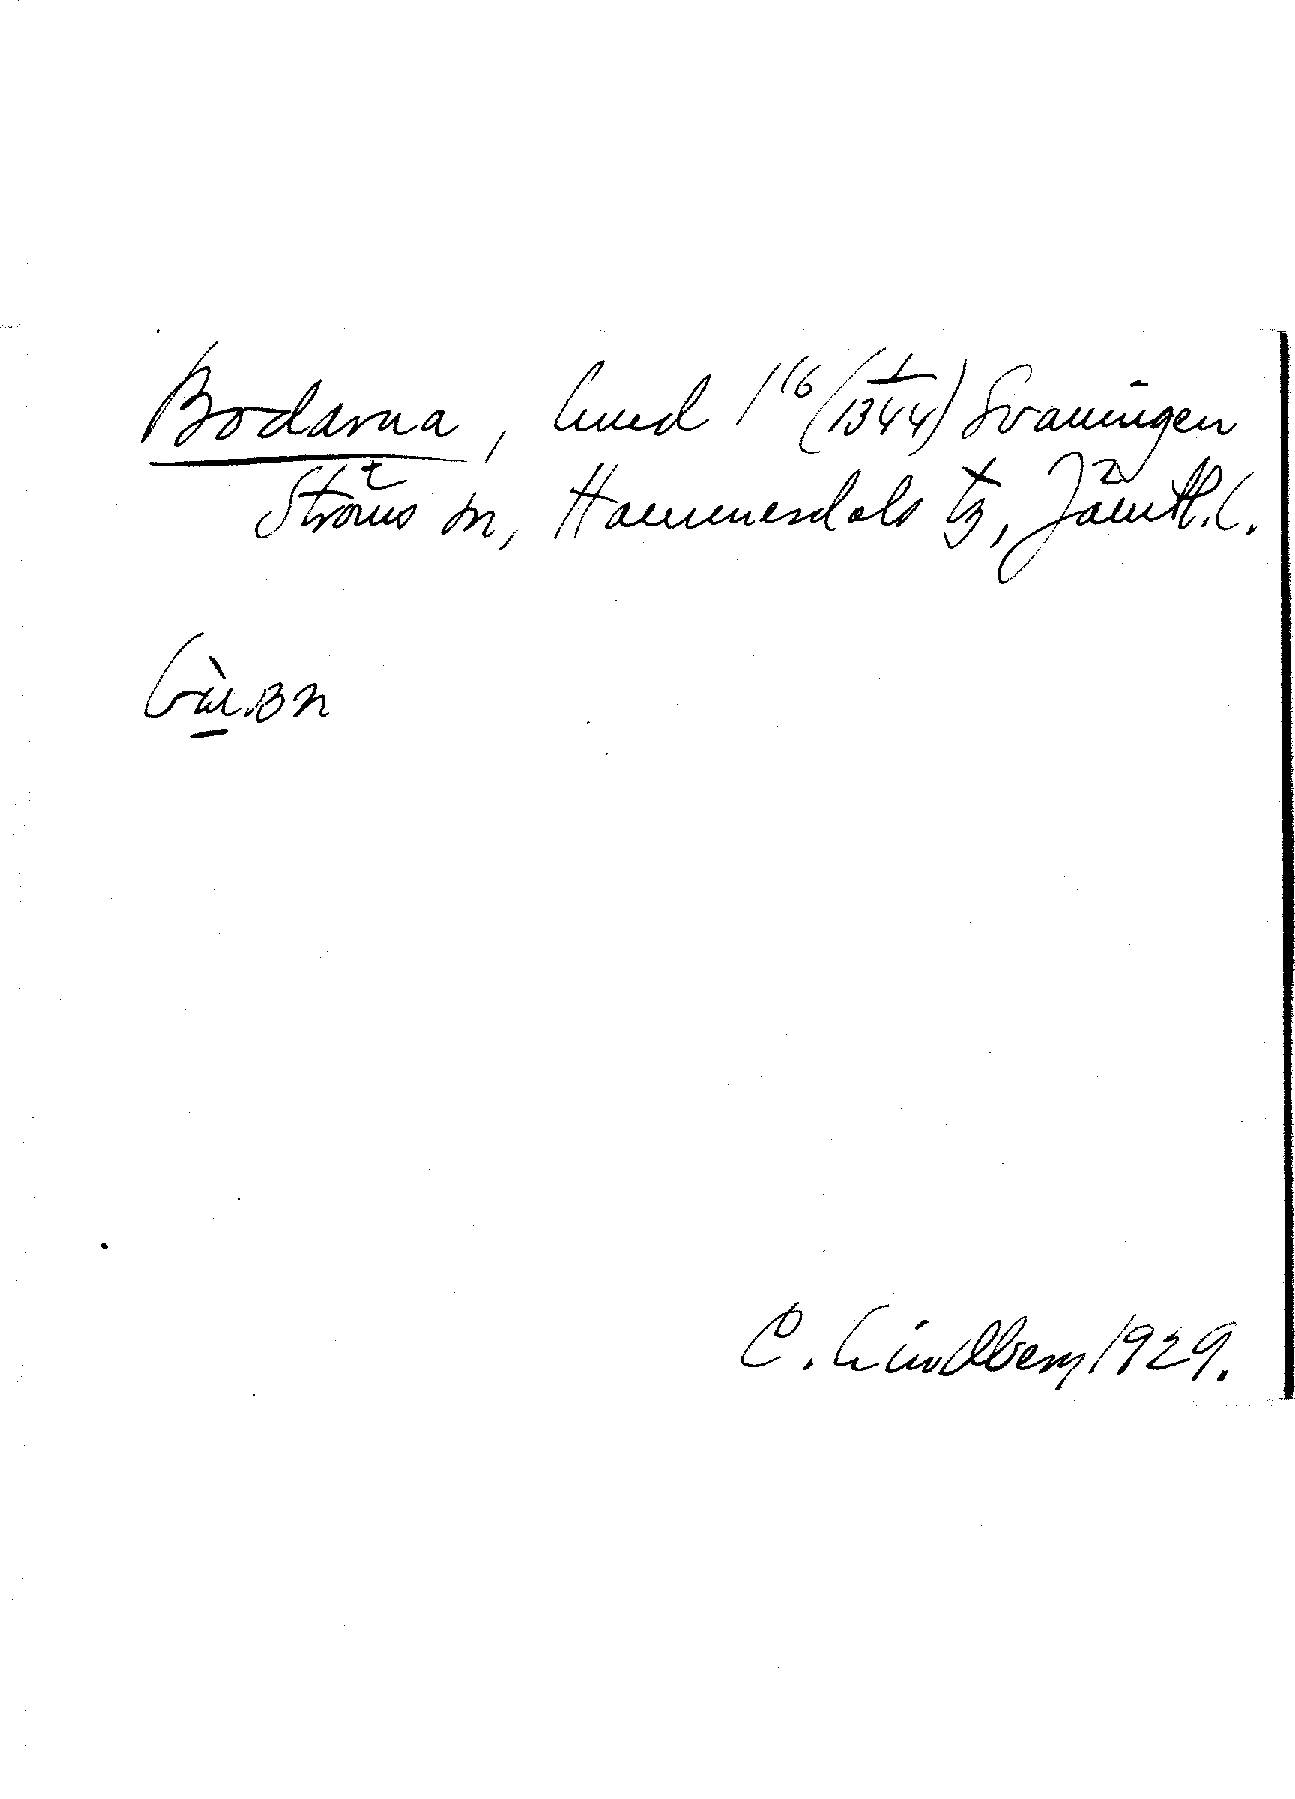 Bodarna, hmd 1/16 (1/1344) Svaningen
Ströms sn, Hammerdals tg, Jämtl. l.
C. Lindberg 1929.